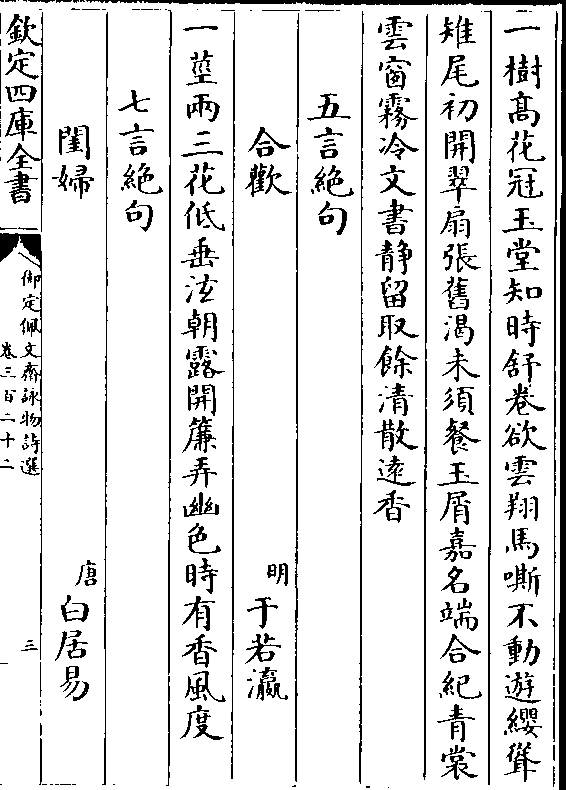 一樹髙花冠玉堂知時舒卷欲雲翔馬嘶不動遊纓聳
雉尾初開翠扇張舊渴未須餐玉屑嘉名端合紀青裳
雲窗霧冷文書静留取餘清散逺香
五言絶句
合歡 明 于若瀛
一莖兩三花低垂泫朝露開簾弄幽色時有香風度
七言絶句
閨婦 唐 白居易
欽定四庫全書
御定佩文齋詠物詩選
卷三百二十二
三